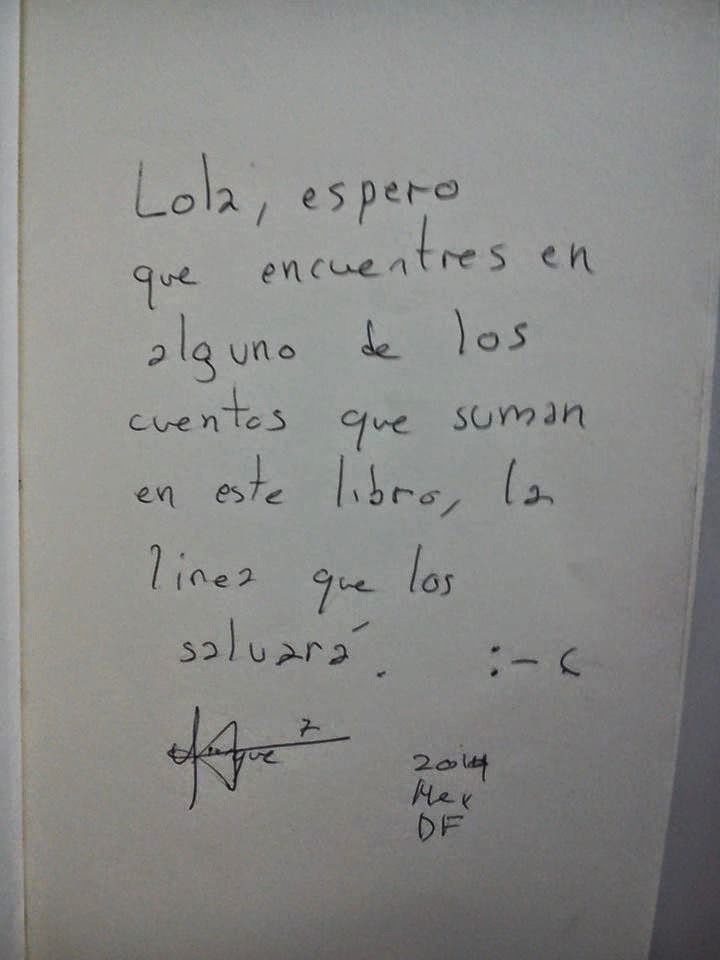 Lola, espero
que encuentres en
alguno de los
cuentos que suman
en este libro, la
linea que los
salvará. :-c
2014
Mex
DF